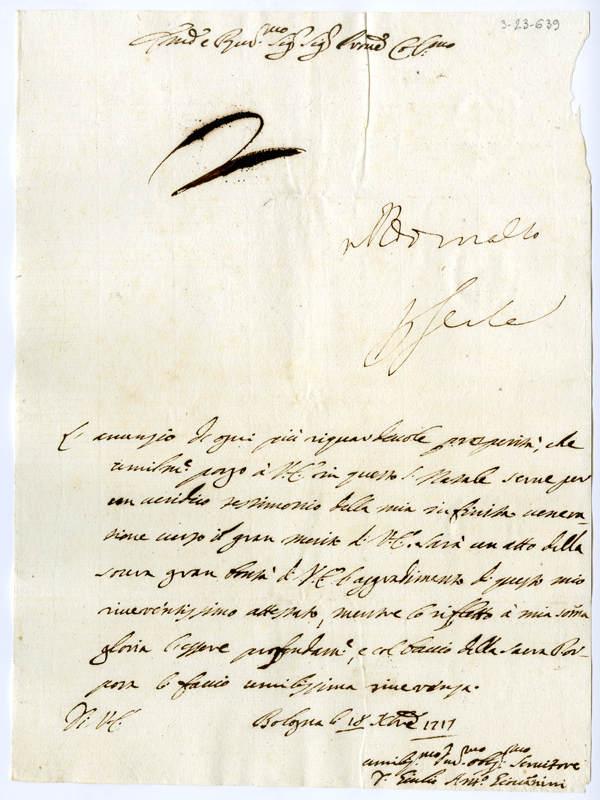 3-23-639
Em.o e Rev.mo Sig.r Sig.r Prone Col.mo
L'annuzio di ogni più riguardevole prosperità, che
umilm.e porgo à V.E. in questo S. Natale serve per
un veridico testimonio della mia infinita venera-
zione verso il gran merito di V.E. Sarà un atto della
sovra gran bontà di V.E. l'aggradimento di questo mio
riverentissimo attestato, mentre lo rifletto à mia somma
gloria l'essere profondam.e, e col baccio della Sacra Por-
pora le faccio umilissima riverenza.
Di V.E.
Bologna li 18 Xbre 1717
umiliss.mo obblig.mo Servitore